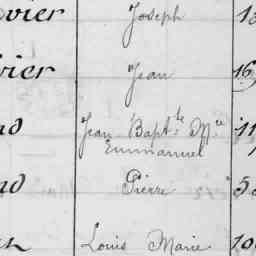 vier Joseph 13
vier Jean 16
nd Jean Bapt.te M.ie 11
Emmanuel
nd Pierre 53
Louis Marie 10